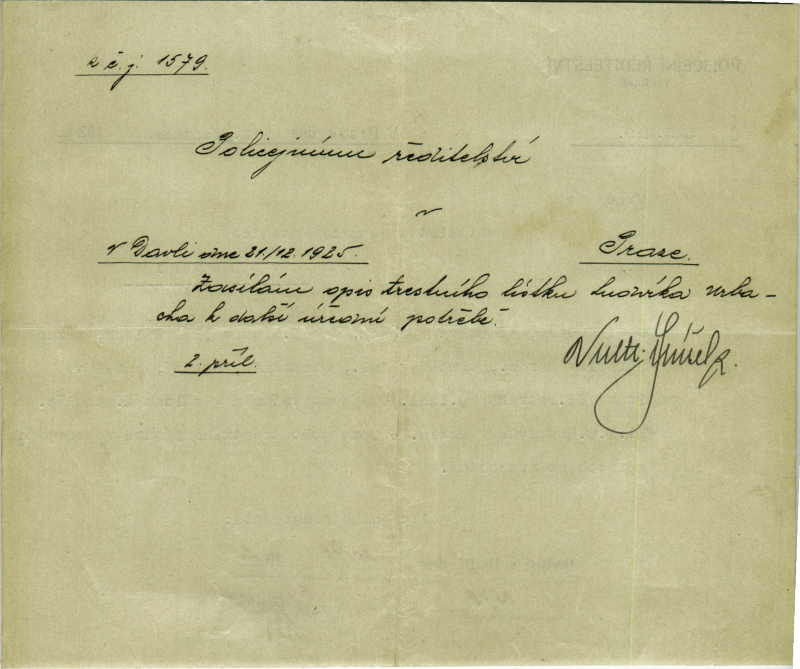 k č.j. 1579.
Policejnímu ředitelství
v
V Davli dne 21/12. 1925.
Praze.
Zasílám opis trestního lístku Ludvíka Urba-
cha k další úřední potřebě.
2. příl.